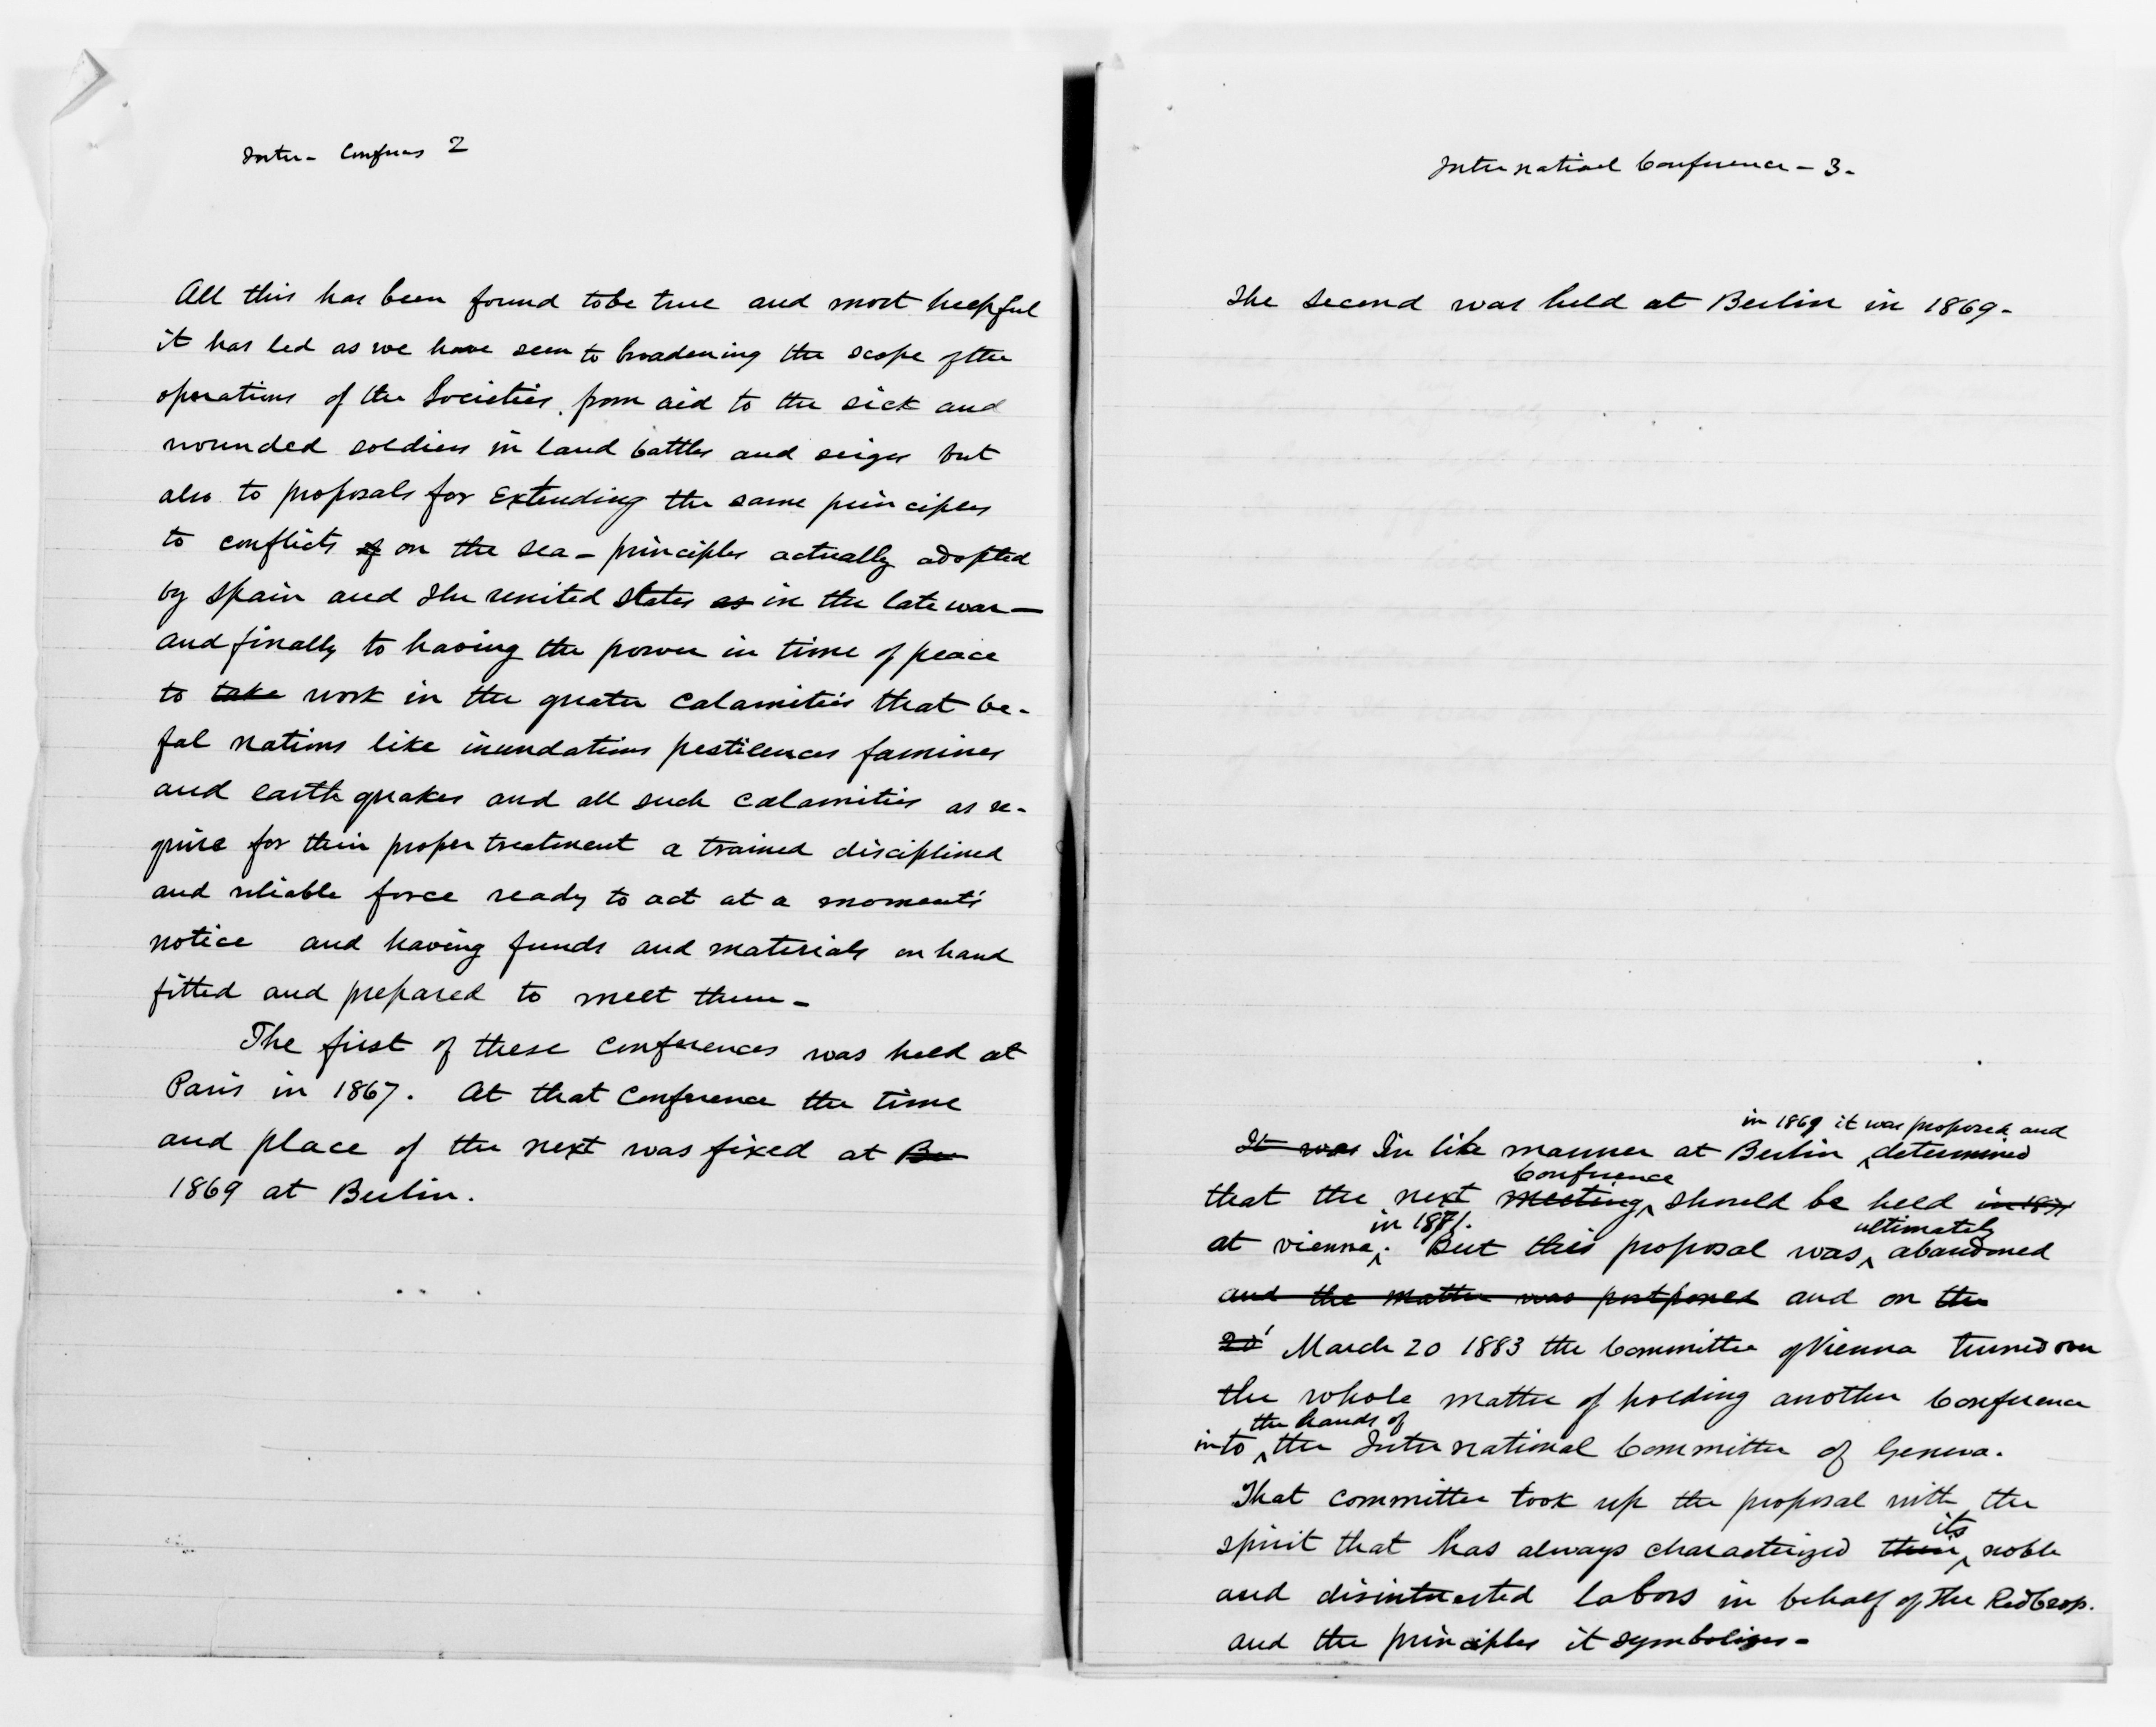 Inter- Confrens 2
All this has been found to be true and most helpful
it has led as we have seen to broadening the scope of the
operations of the Societies, from aid to the sick and
wounded soldiers in land battles and seiges but
also to proposals for Extending the same principles
to conflicts of on the sea - principles actually adopted
by Spain and The United States as in the late war —
and finally to having the power in time of peace
to take work in the greater Calamities that be-
fal nations like inundations pestilences famines
and earth quakes and all such calamities as re-
quire for their proper treatment a trained disciplined
and reliable force ready to act at a moment's
notice and having funds and materials on hand
fitted and prepared to meet them -
The first of these Conferences was held at
Paris in 1867. At that Conference the time
and place of the next was fixed at Be
1869 at Berlin.
Internatinal Conference - 3.
The second was held at Berlin in 1869.
in 1869 it was proposed and
It was In like manner at Berlin determined
Conference
that the next meeting should be held in 1871
in 1871. ultimately
at Vienna. But this proposal was abandoned
and the matter was postponed and on the
20' March 20 1883 the Committee of Vienna turned over
the whole matter of holding another Conference
the hands of
into the International Committee of Geneva.
That committee took up the proposal with the
its
spirit that has always characterized their noble
and disinterested labors in behalf of the Red Cross.
and the principles it symbolizes -